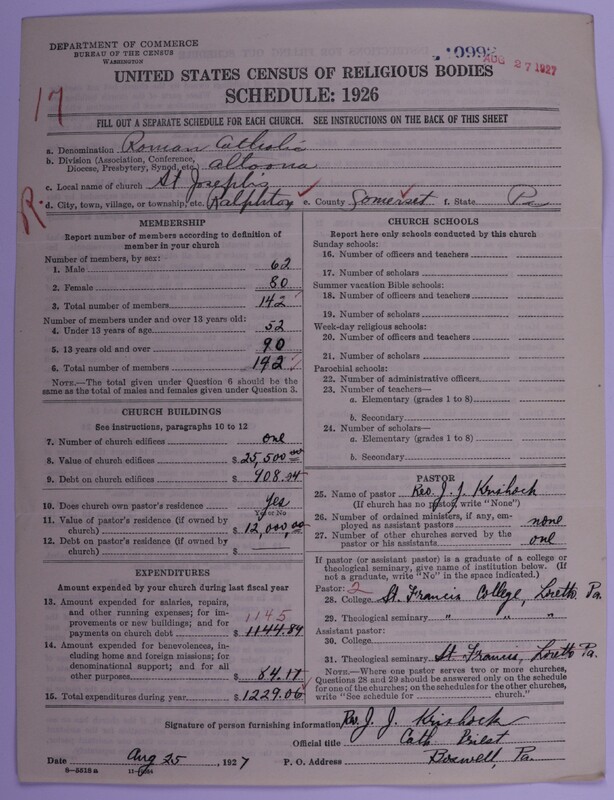 DEPARTMENT OF COMMERCE
BUREAU OF THE CENSUS
WASHINGTON
AUG 27 1927
UNITED STATES CENSUS OF RELIGIOUS BODIES
SCHEDULE: 1926
17
FILL OUT A SEPARATE SCHEDULE FOR EACH CHURCH. SEE INSTRUCTIONS ON THE BACK OF THIS SHEET
a. Denomination Roman Catholic
b. Division (Association, Conference, Diocese, Presbytery, Synod, etc.) Altoona
c. Local name of church St Joseph's
R.
d. City, town, village, or township, etc. Ralphton e. County Somerset f. State Pa
MEMBERSHIP
Report number of members according to definition of
member in your church
Number of members, by sex:
1. Male 62
2. Female 80
3. Total number of members 142
Number of members under and over 13 years old:
4. Under 13 years of age 52
5. 13 years old and over 90
6. Total number of members 142
NOTE.—The total given under Question 6 should be
same as the total of males and females given under Question 3.
CHURCH BUILDINGS
See instructions, paragraphs 10 to 12
7. Number of church edifices one
8. Value of church edifices $25,500.00
9. Debt on church edifices $908.04
10. Does church own pastor's residence Yes
Yes or No
11. Value of pastor's residence (if owned by
church) $12,000,00
12. Debt on pastor's residence (if owned by
church) $
EXPENDITURES
Amount expended by your church during last fiscal year
13. Amount expended for salaries, repairs,
and other running expenses; for im-
provements or new buildings; and for 1145
payments on church debt $1144.89
14. Amount expended for benevolences,
including home and foreign missions; for
denominational support; and for all
other purposes 84.17
15. Total expenditures during year $1229.06
CHURCH SCHOOLS
Report here only schools conducted by this church
Sunday schools:
16. Number of officers and teachers
17. Number of scholars
Summer vacation Bible schools:
18. Number of officers and teachers
19. Number of scholars
Week-day religious schools:
20. Number of officers and teachers
21. Number of scholars
Parochial schools:
22. Number of administrative officers
23. Number of teachers—
a. Elementary (grades 1 to 8)
b. Secondary
24. Number of scholars—
a. Elementary (grades 1 to 8)
b. Secondary
PASTOR
25. Name of pastor Rev. J. J. Krishock
(If church has no pastor, write "None")
26. Number of ordained ministers, if any, em-
ployed as assistant pastors none
27. Number of other churches served by the
pastor or his assistants one
If pastor (or assistant pastor) is a graduate of a college or
theological seminary, give name of institution below. (If
not a graduate, write "No" in the space indicated.)
Pastor: 2
28. College St. Francis College, Loretto Pa.
29. Theological seminary " " "
Assistant pastor:
30. College
31. Theological seminary St. Francis, Loretto Pa.
NOTE.—Where one pastor serves two or more churches,
Questions 28 and 29 should be answered only on the schedule
for one of the churches; on the schedules for the other churches,
write "See schedule for church."
Signature of person furnishing information Rev. J. J. Krishock
Official title Cath. Priest
Date Aug 25, 1927 P. O. Address Boswell, Pa.
8-5518a